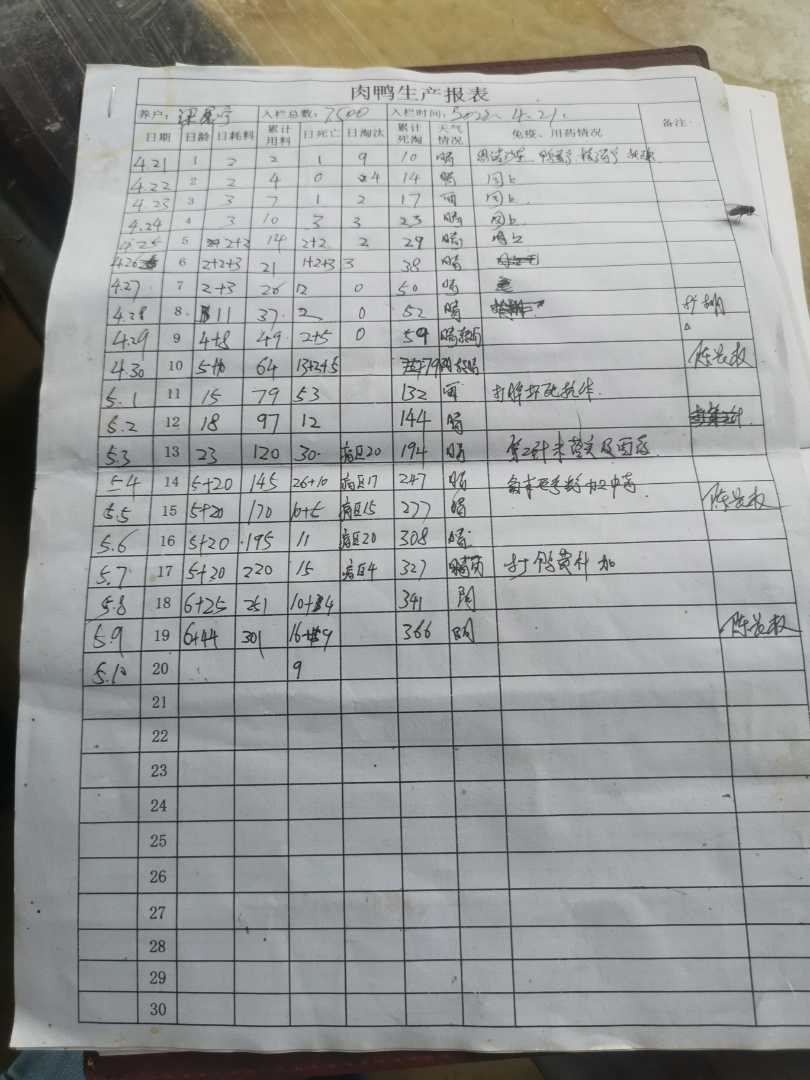 肉鸭生产报表
养户: 入栏总数:7500 入栏时间: 4.21.
日期 日龄 日耗料 累计用料 日死亡 日淘汰 累计死淘 天气情况 免疫、用药情况 备注
4.21 1 2 2 1 9 10 晴
4.22 2 2 4 0 4 14 晴 同上
4.23 3 3 7 1 2 17 雨 同上
4.24 4 3 10 3 3 23 晴 同上
4.25 5 2+2 14 2+2 2 29 晴 同上
4.26 6 2+2+3 21 1+2+3 3 38 晴
4.27 7 2+3 26 12 0 50 晴
4.28 8 11 37 2 0 52 晴
4.29 9 4+8 49 2+5 0 59
4.30 10 64 13+2+5 79
5.1 11 15 79 53 132 雨
5.2 12 18 97 12 144 晴
5.3 13 23 120 30 病区20 194 晴
5.4 14 5+20 145 26+10 病区17 247 晴
5.5 15 5+20 170 10+5 病区15 277 晴
5.6 16 5+20 195 11 病区20 308 晴
5.7 17 5+20 220 15 病区4 327
5.8 18 6+25 251 10+4 341 阴
5.9 19 6+44 301 16+9 366 阴
5.10 20 9
21
22
23
24
25
26
27
28
29
30